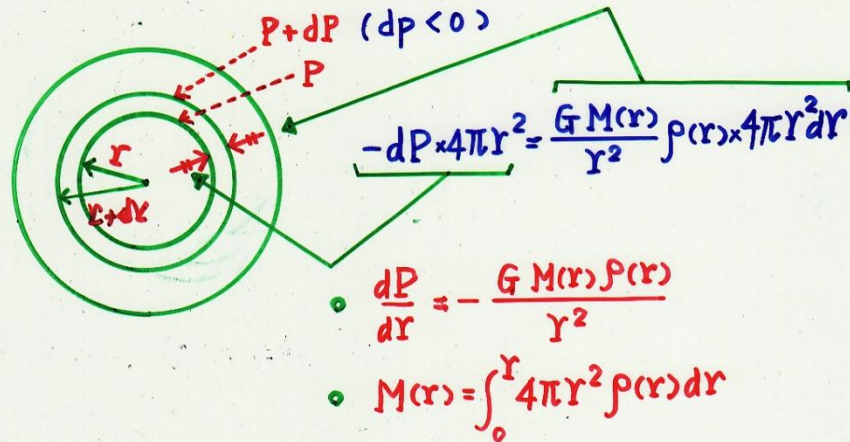 P+dP (dp<0)
P
-dP×4πr²= GM(r)/r² ρ(r)×4πr²dr
r
r+dr
dP/dr = - G M(r) ρ(r)/r²
M(r)=∫₀ʳ 4πr² ρ(r)dr